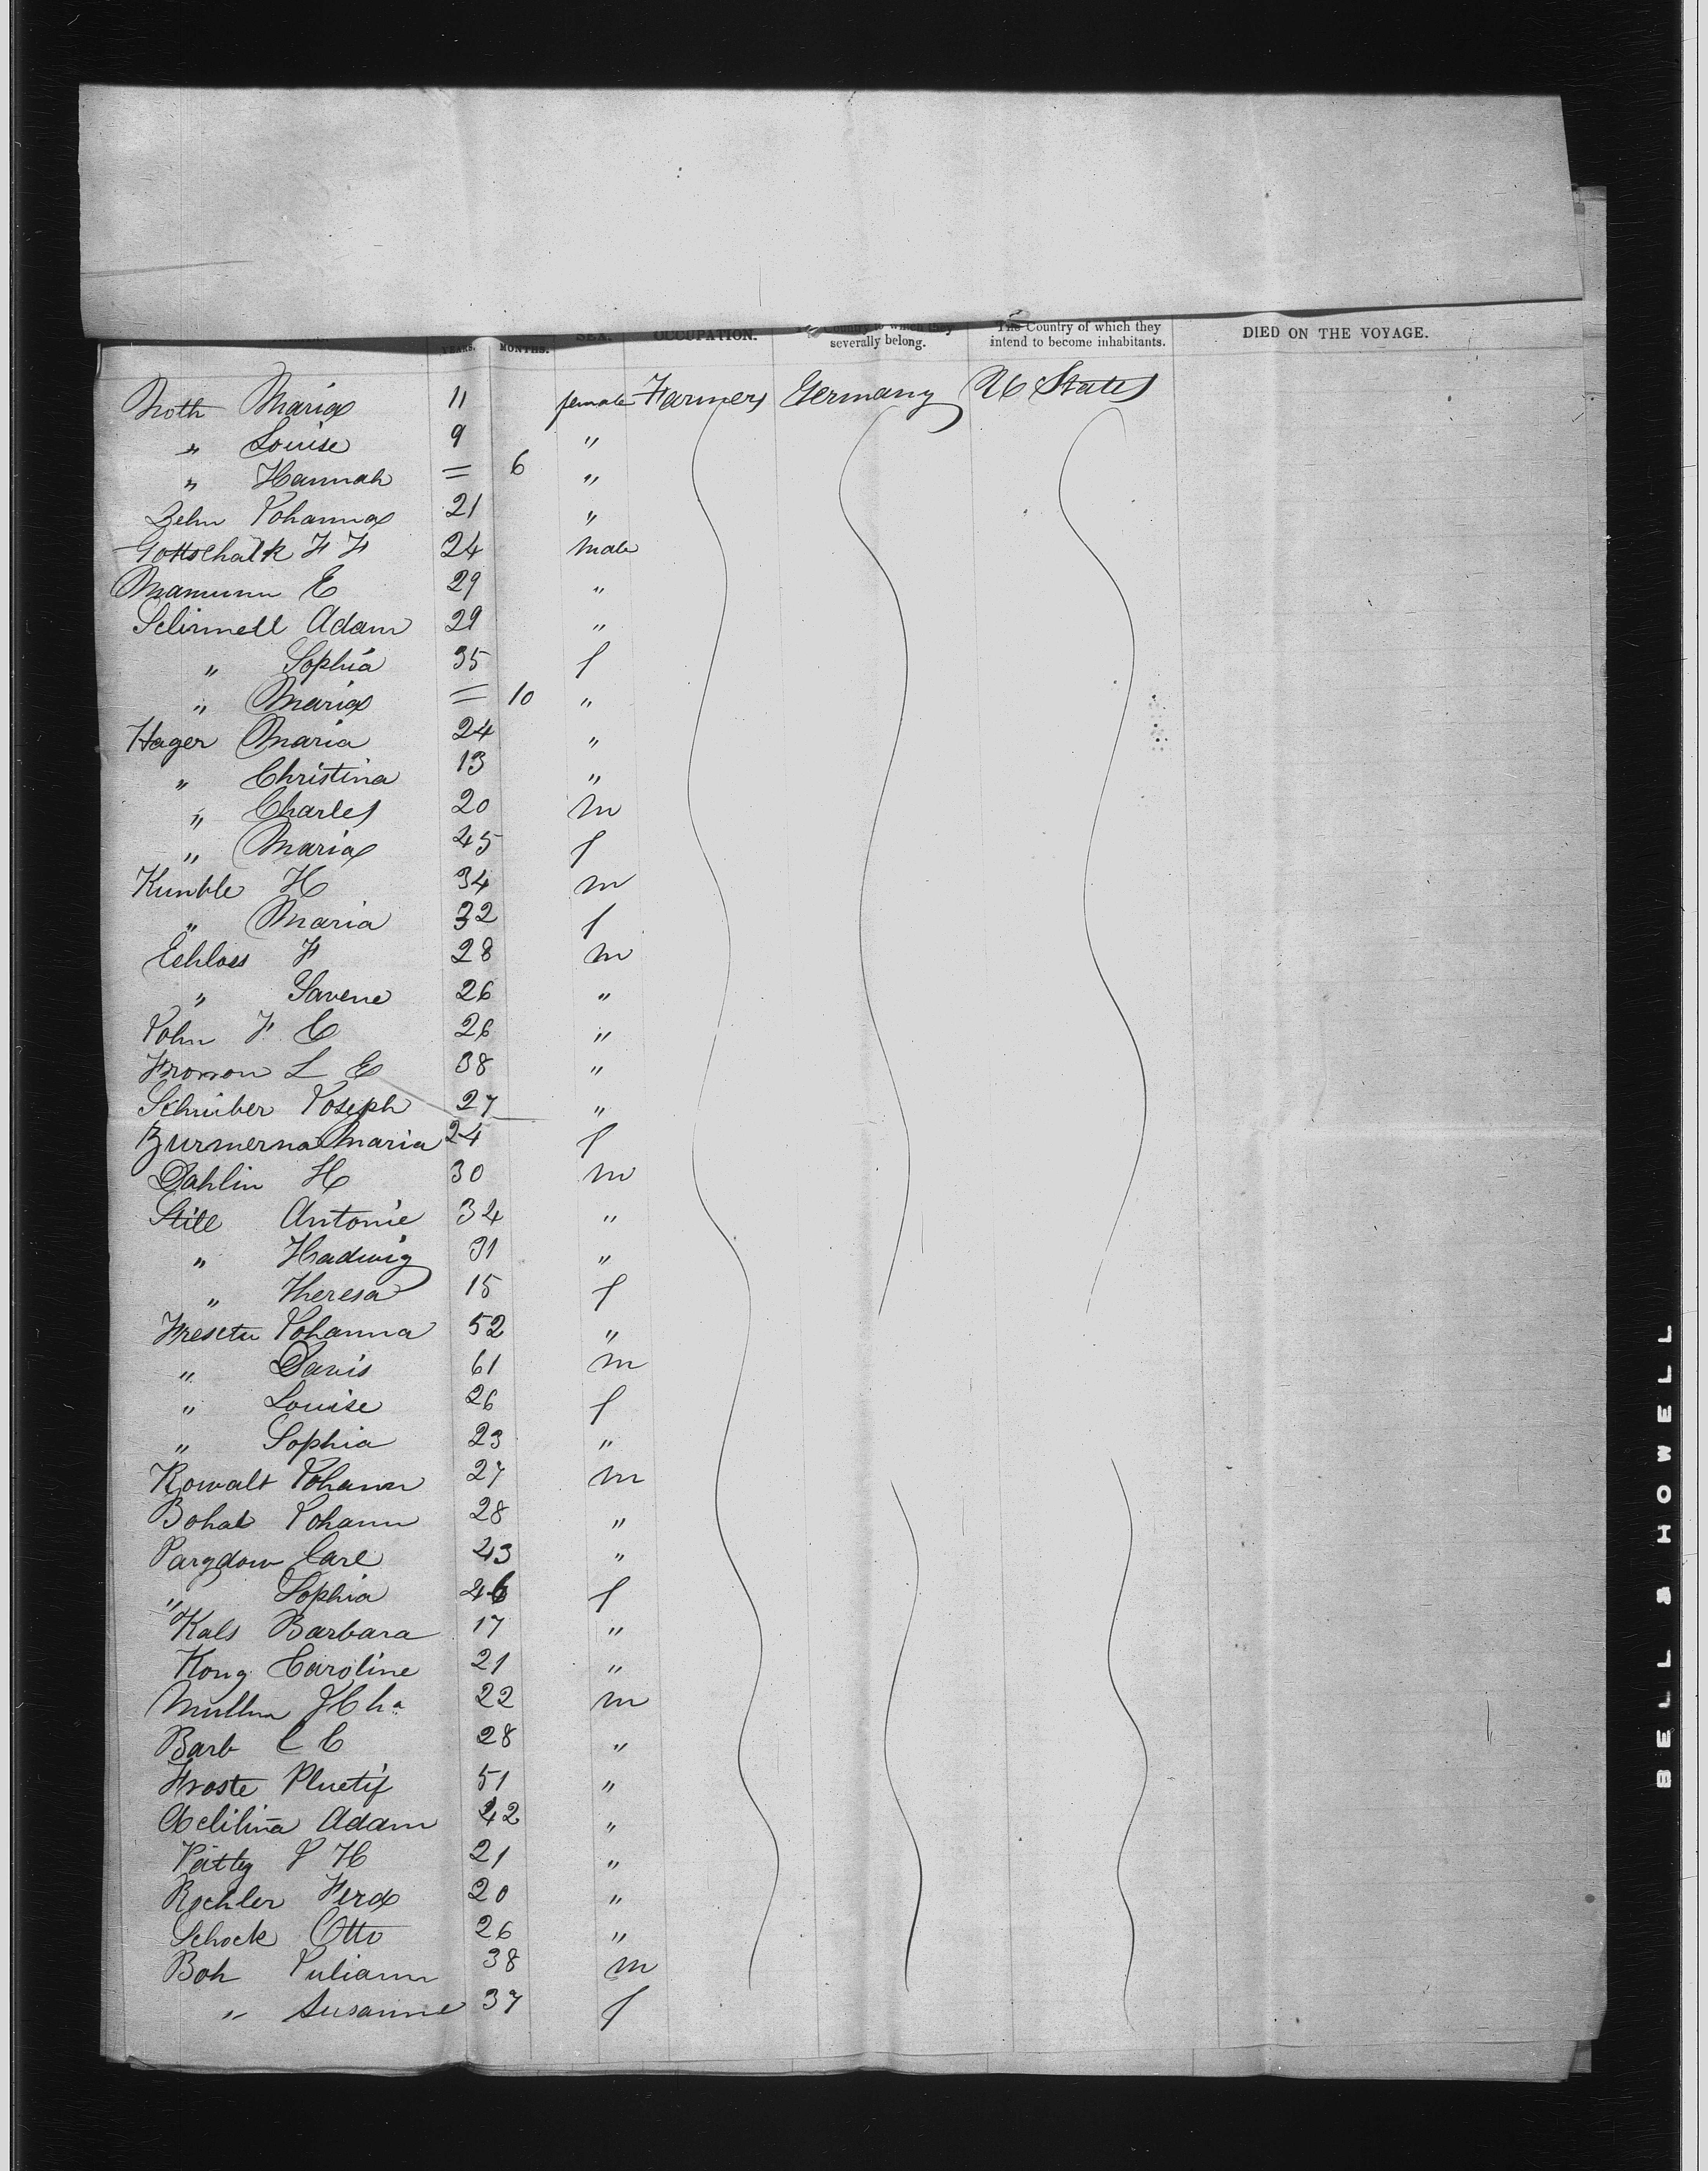 YEARS. MONTHS. SEX. OCCUPATION. The Country to which they severally belong. The Country of which they intend to become inhabitants. DIED ON THE VOYAGE.
Noth Maria 11 female Farmers Germany U States
" Louise 9 "
" Hannah = 6 "
Zehn Johanna 21 "
Gottschalk F F 24 male
Mamunn E 29 "
Schirmell Adam 29 "
" Sophia 35 f
" Maria = 10 "
Hager Maria 24 "
" Christina 13 "
" Charles 20 m
" Maria 45 f
Kunkle H 34 m
" Maria 32 f
Echloss F 28 m
" Savene 26 "
John F C 26 "
Fronon L E 38 "
Schriber Joseph 27 "
Zurmerna Maria 24 f
Dahlin H 30 m
Still Antonie 34 "
" Hadwig 31 "
" Theresa 15 f
Johanna 52 "
" Davis 61 m
" Louise 26 f
" Sophia 23 "
Kowalt Johann 27 m
Bohal Johann 28 "
Pargdow Carl 43 "
" Sophia 46 f
Kals Barbara 17 "
Kong Caroline 21 "
Mullen 22 m
Barb C C 28 "
Froste 51 "
Adam 42 "
Patty J H 21 "
Rochler Ferd 20 "
Schock Otto 26 "
Boh Juliann 38 m
" Susanne 37 f
BELL & HOWELL